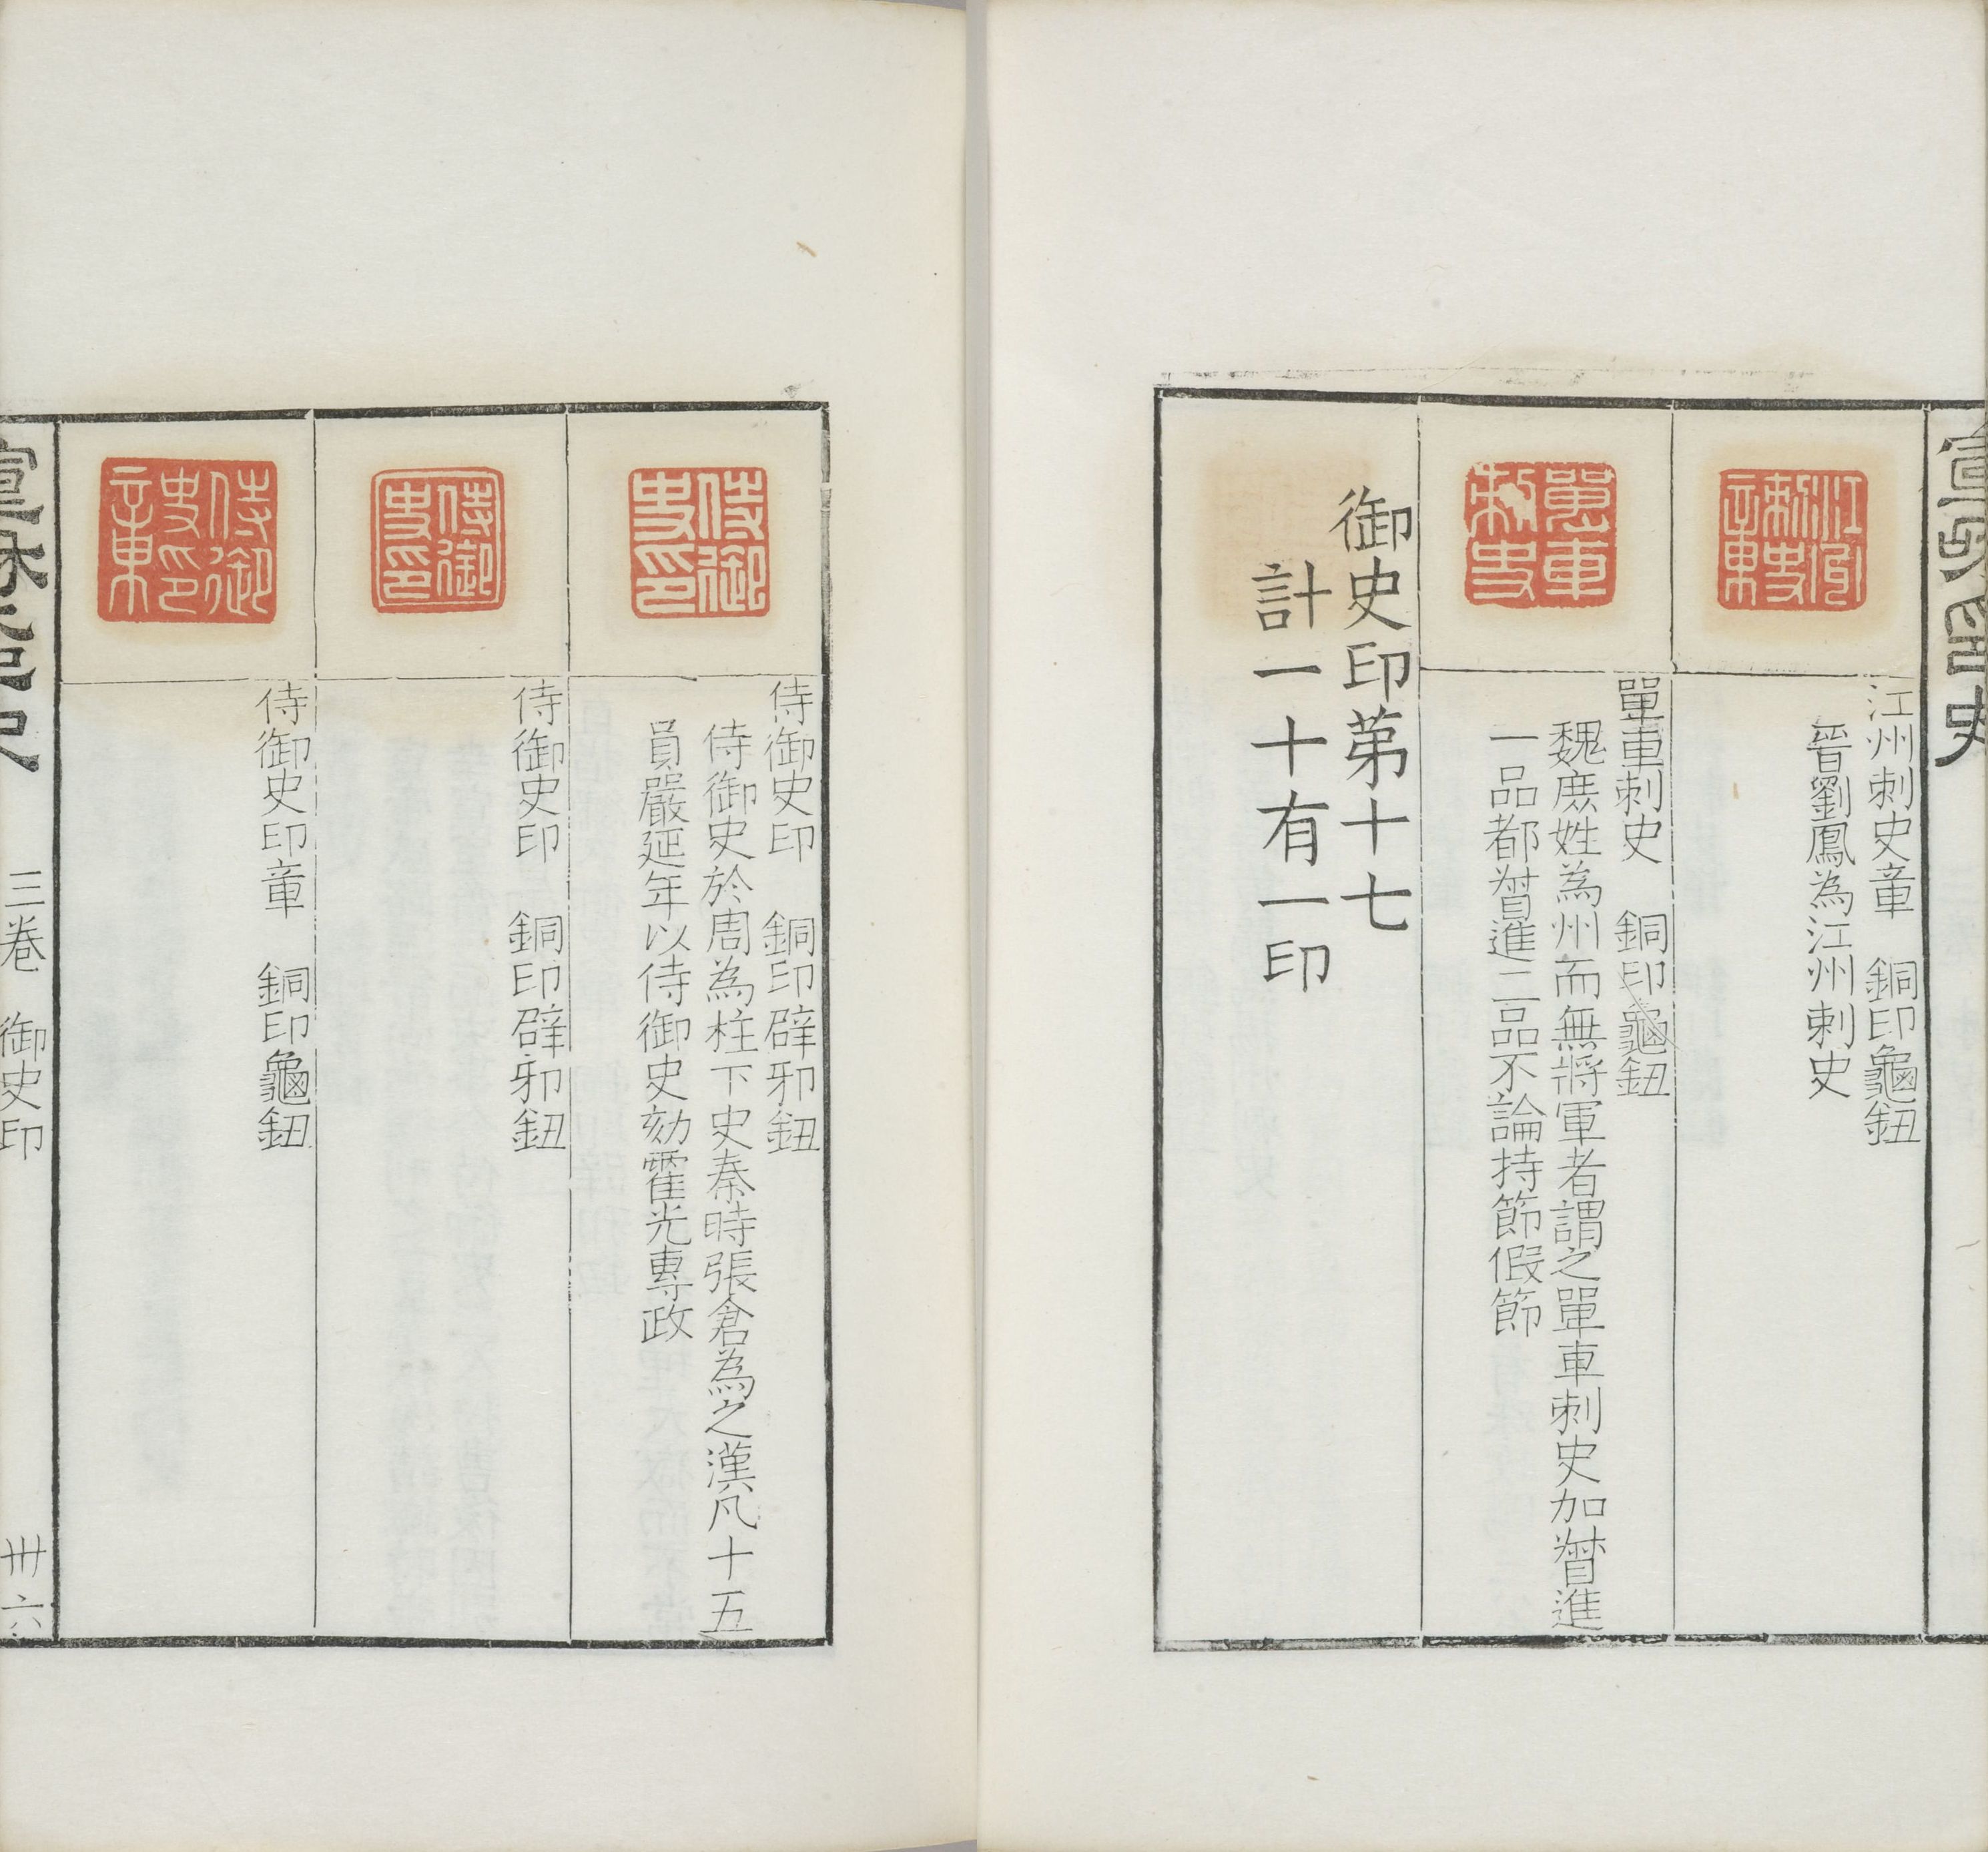 宣和印史
江州刺史章
江州刺史章　銅印龜鈕
晉劉鳳為江州刺史
單車刺史
單車刺史　銅印龜鈕
魏庶姓為州而無將軍者謂之單車刺史加督進
一品都督進二品不論持節假節
御史印第十七
計一十有一印
侍御史印
侍御史印　銅印辟邪鈕
侍御史於周為柱下史秦時張倉為之漢凡十五
員嚴延年以侍御史劾霍光專政
侍御史印
侍御史印　銅印辟邪鈕
侍御史印章
侍御史印章　銅印龜鈕
宣和印史　三卷　御史印　卅六